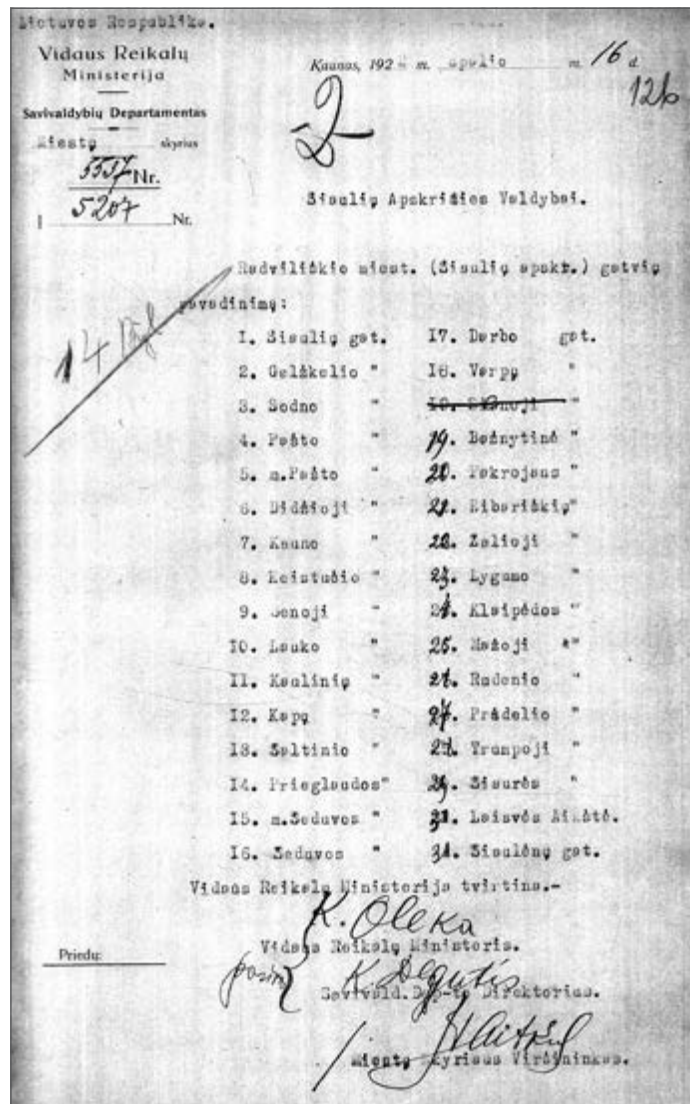 Lietuvos Respublika.
Vidaus Reikalų
Ministerija
Savivaldybių Departamentas
Miestų skyrius
5537 Nr.
5207 Nr.
Kaunas, 192 m. spalio m. 16 d.
126
2
Šiaulių Apskrities Valdybai.
Radviliškio miest. (Šiaulių apskr.) gatvių
pavadinimą:
14
1. Šiaulių gat.
2. Gelžkelio "
3. Sodno "
4. Pašto "
5. m.Pašto "
6. Didžioji "
7. Kauno "
8. Keistučio "
9. Senoji "
10. Lauko "
11. Kaulinių "
12. Kapų "
13. Šaltinio "
14. Prieglaudos"
15. m.Šeduvos "
16. Šeduvos "
17. Darbo gat.
18. Varpų "
19. "
19. Bažnytinė "
20. Pakrojaus "
21. Ribariškių"
22. Žalioji "
23. Lygumo "
24. Klaipėdos "
25. Mažoji "
26. Rudenio "
27. Pradelio "
28. Trumpoji "
29. Šiaurės "
30. Laisvės Aikštė.
31. Šiaulėnų gat.
Vidaus Reikalų Ministerija tvirtina.-
K. Oleka
Vidaus Reikalų Ministeris.
K. Degutis
Savivald.Dep-to Direktorius.
Miestų Skyriaus Viršininkas.
Priedų: